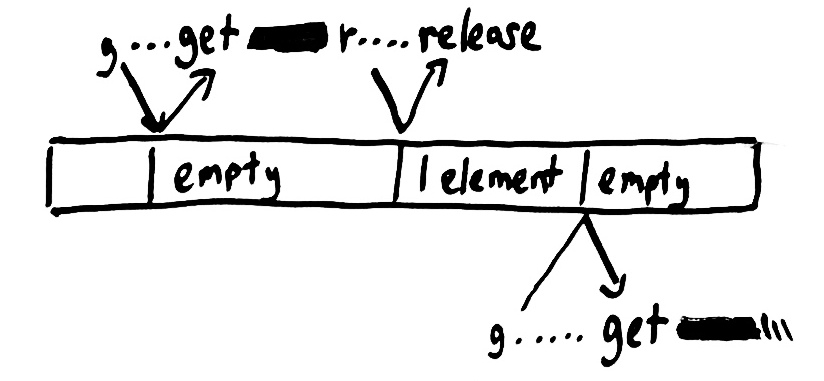 g...get r....release
empty 1 element empty
g.....get